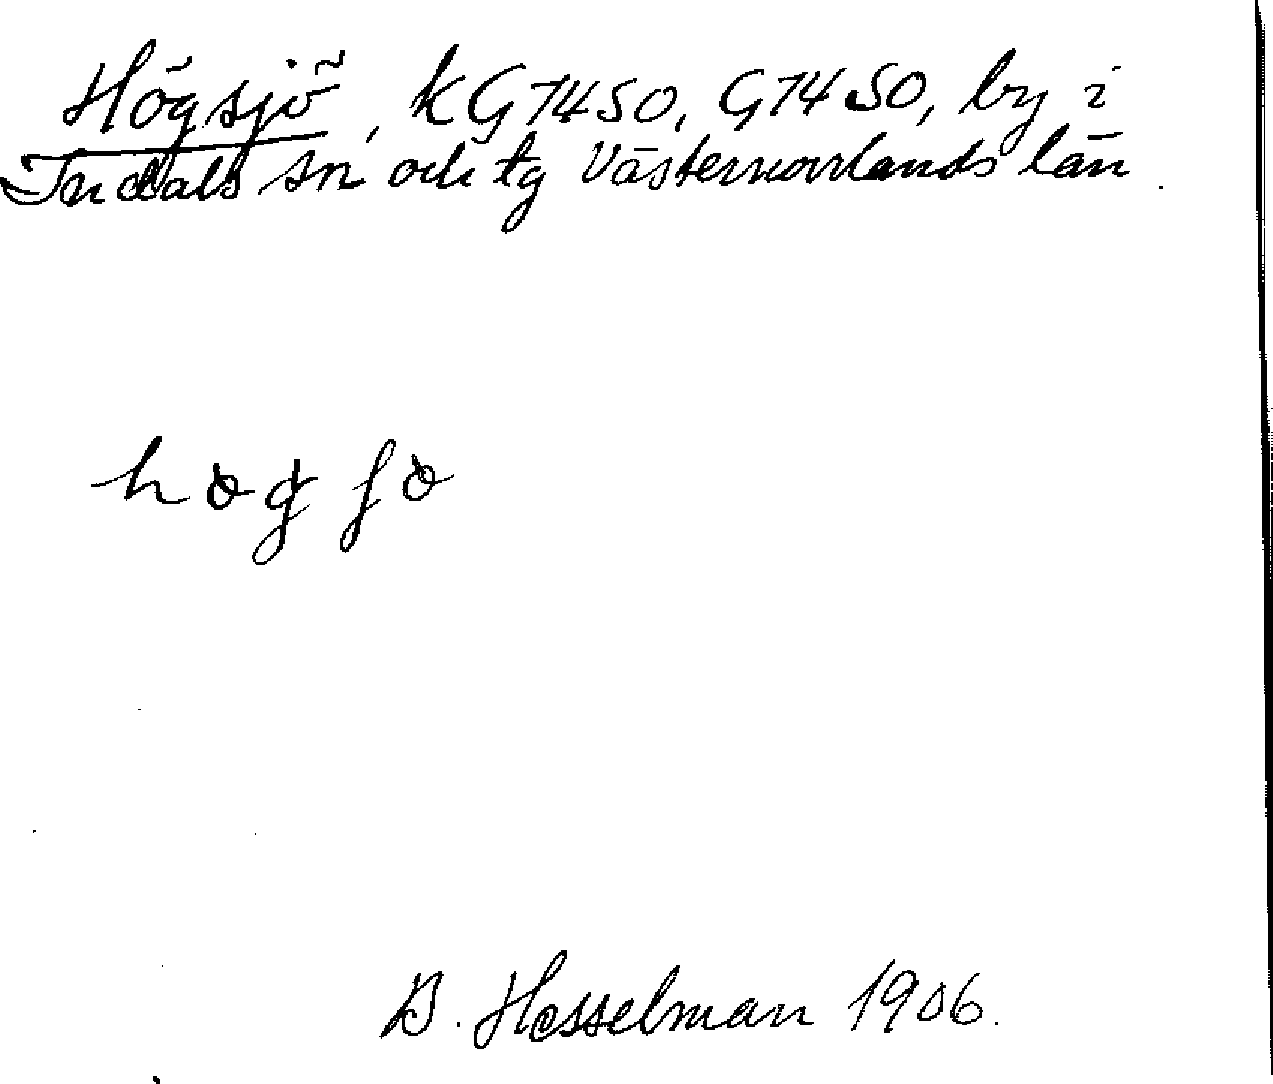 Högsjö, kG7450, G7450, by i
Indals sn och tg Västernorrlands län.
B. Hesselman 1906.